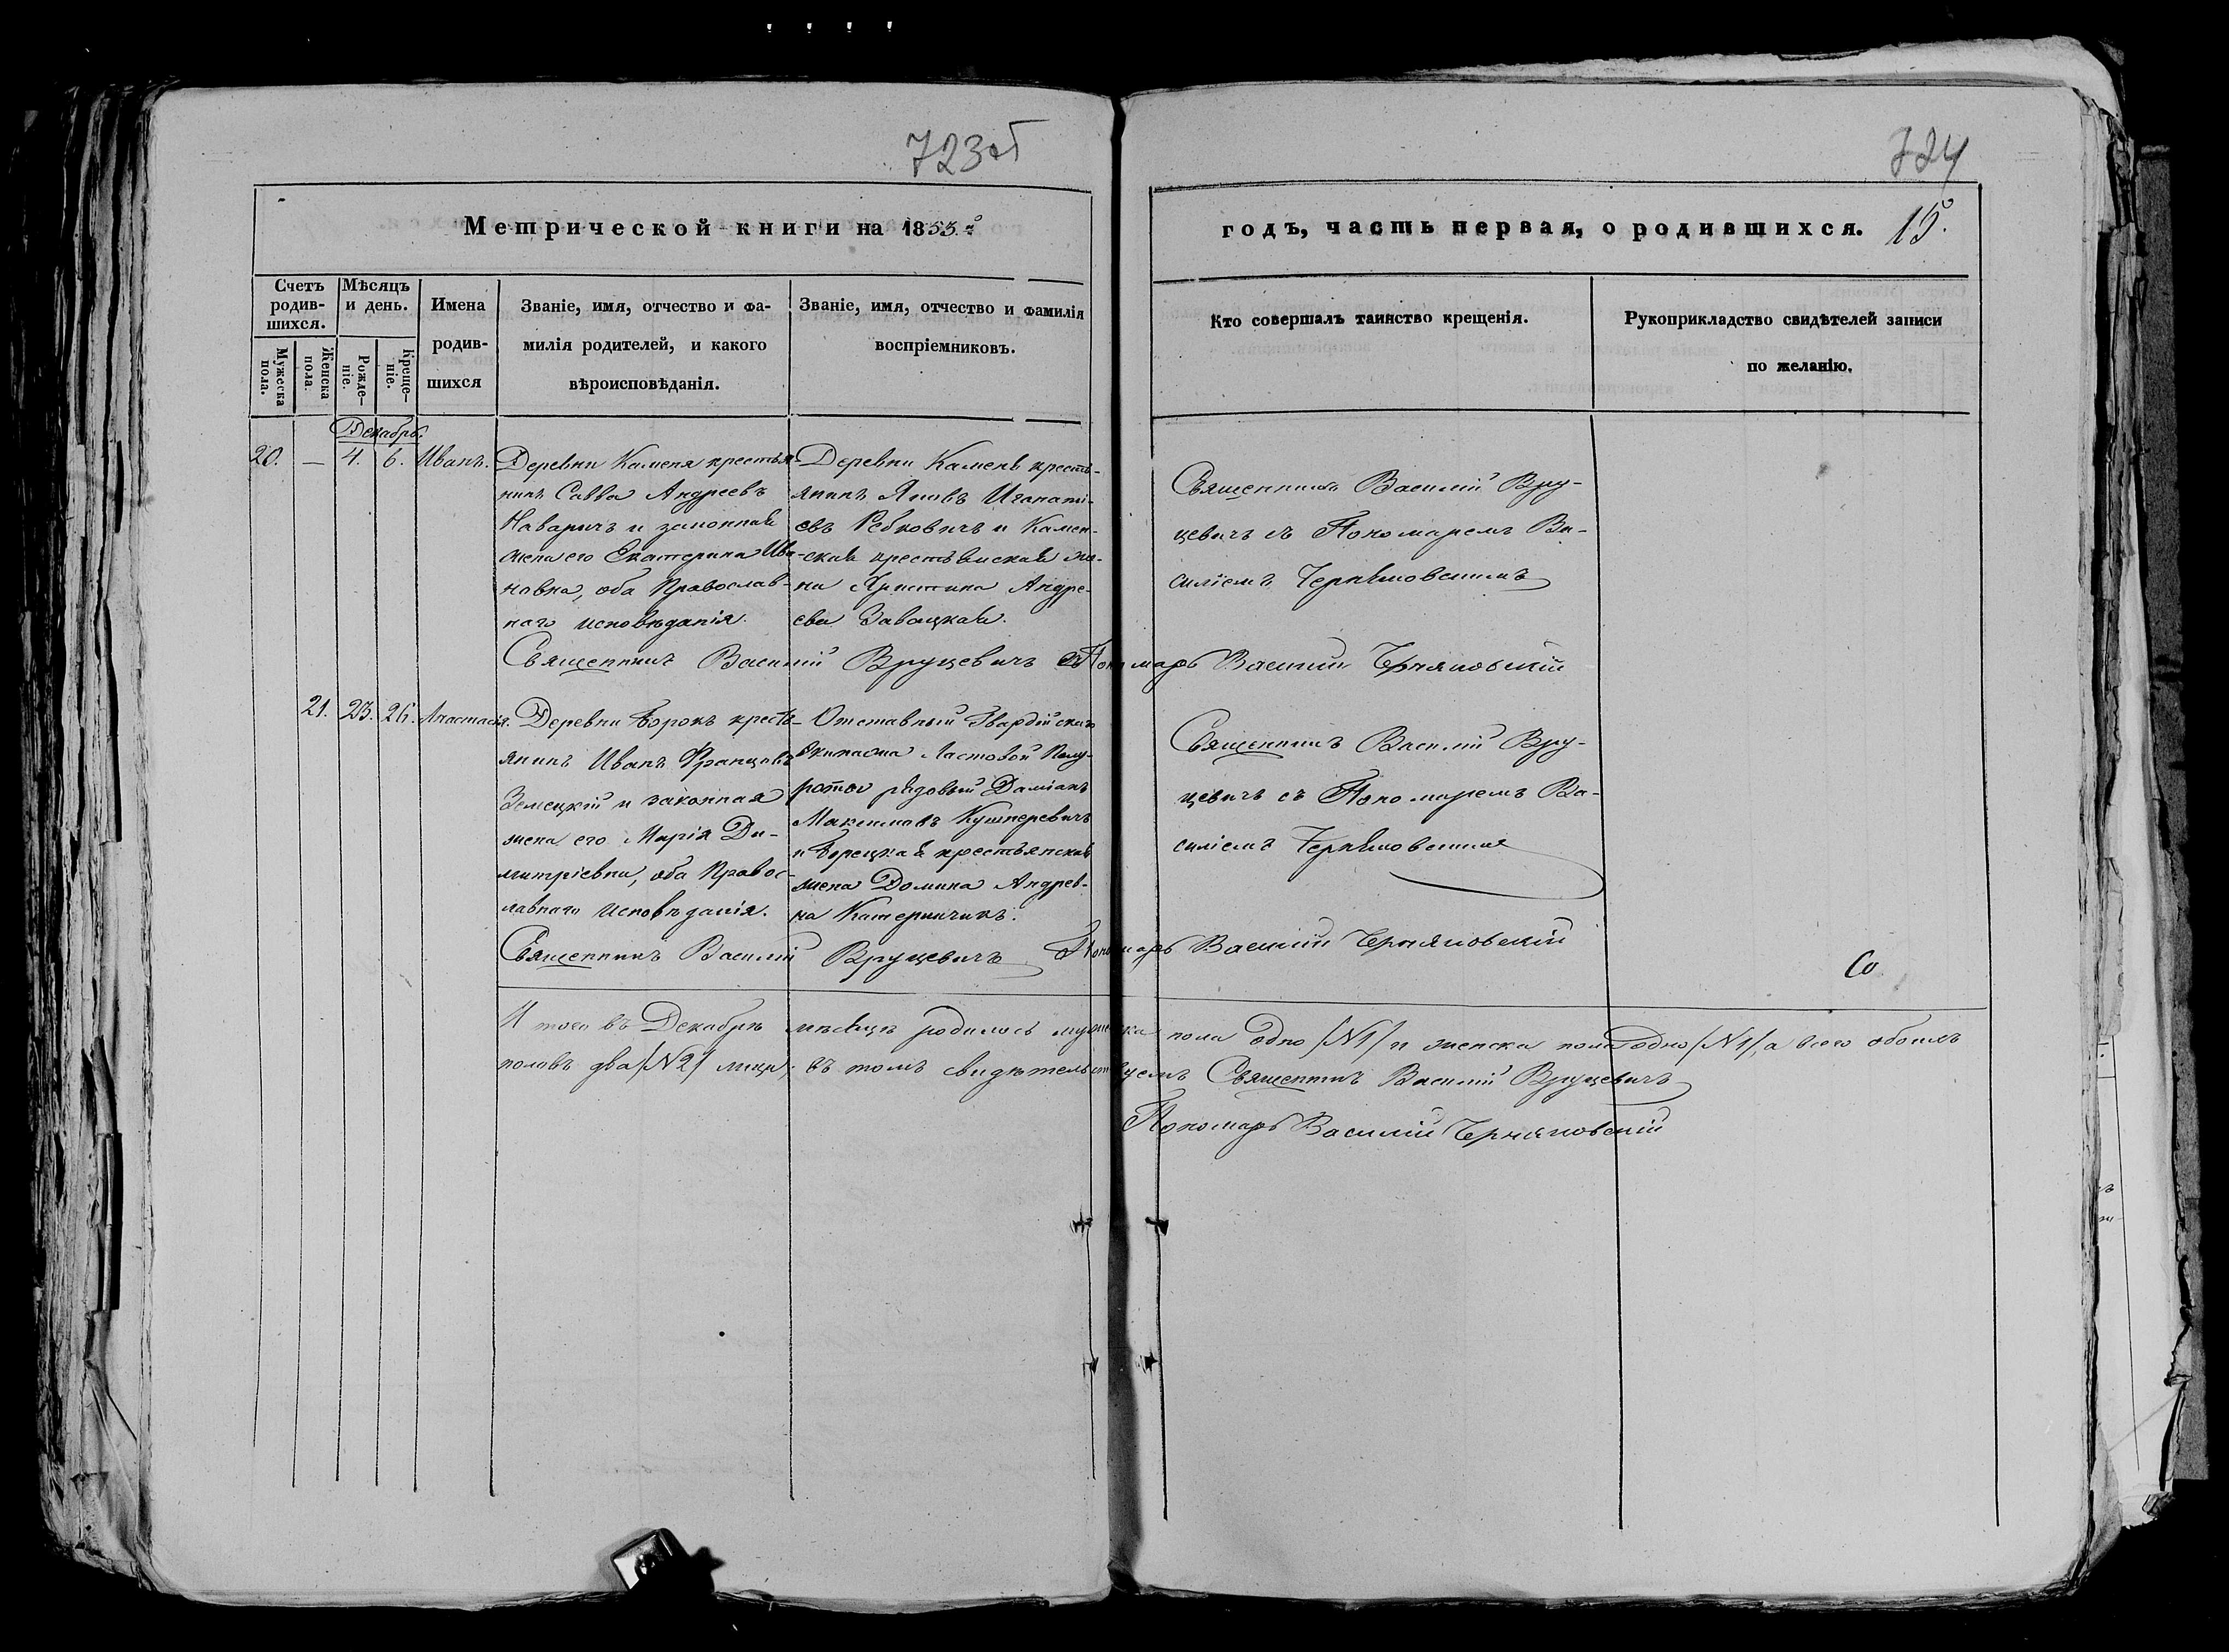 723об
724
Метрической книги на 1855й
годъ, часть первая, о родившихся.
15.
Счетъ родив-шихся.
Мѣсяцъ и день.
Мужеска пола.
Женска пола.
Рожде-ніе.
Креще-ніе.
Имена
родив-
шихся
Званіе, имя, отчество и фа-
милія родителей, и какого
вѣроисповѣданія.
Званіе, имя, отчество и фамилія
воспріемниковъ.
Кто совершалъ таинство крещенія.
Рукоприкладство свидѣтелей записи
по желанію.
Декабрь.
20. — 4. 6. Иванъ.
Деревни Каменя крестья-
нинъ Савва Андреевъ
Наваричъ и законная
жена его Екатерина Ива-
новна, оба Православ-
наго исповѣданія.
Деревни Камень кресть-
янинъ Яковъ Игнаті-
евъ Рабковичъ и Камен-
ская крестьянская же-
на Христина Андре-
ева Завацкая.
Священникъ Василій Вру-
цевичъ съ Пономаремъ Ва-
силіемъ Черняковскимъ
Священникъ Василій Вруцевичъ Пономарь Василій Черняковскій
21. 23. 26. Анастасія.
Деревни Борокъ кресть-
янинъ Иванъ Францовъ
Земецкій и законная
жена его Марія Ди-
митріевна, оба Правос-
лавнаго исповѣданія.
Отставный Гвардійскаго
Экипажа Ластовой Полу-
роты рядовый Даміанъ
Максимовъ Кушнеревичъ
и Борецкая крестьянская
жена Домина Андрев-
на Катеринчикъ.
Священникъ Василій Вру-
цевичъ съ Пономаремъ Ва-
силіемъ Черняковскимъ
Священникъ Василій Вруцевичъ Пономарь Василій Черняковскій
Со
И того въ Декабрѣ мѣсяцѣ родилось мужеска пола одно /№1/ и женска пола одно /№1/, а всего обоихъ
половъ два /№2/ лица; въ томъ свидѣтельствуемъ Священникъ Василій Вруцевичъ
Пономарь Василій Черняковскій